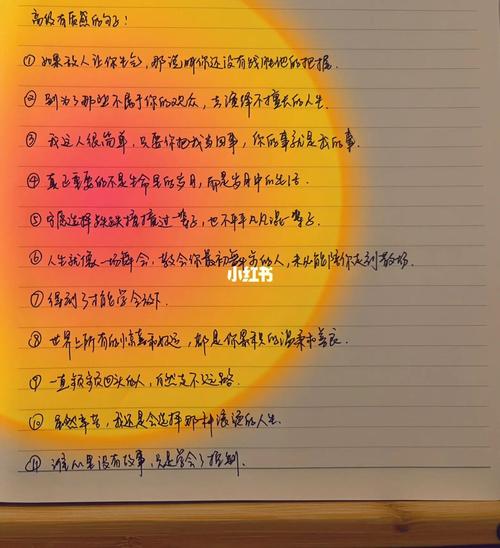 高级有质感的句子！
① 如果敌人让你生气，那说明你还没有战胜他的把握.
② 别为了那些不属于你的观众，去演绎不擅长的人生.
③ 我这人很简单，只要你把我当回事，你的事就是我的事.
④ 真正重要的不是生命里的岁月，而是岁月中的生活.
⑤ 宁愿选择跌跌撞撞过一辈子，也不平平凡凡混一辈子.
⑥ 人生就像一场舞会，教会你最初舞步的人，未必能陪你走到散场.
小红书
⑦ 得到了才能学会放下.
⑧ 世界上所有的惊喜和好运，都是你累积的温柔和善良.
⑨ 一直频频回头的人，自然走不远路.
⑩ 虽然辛苦，我还是会选择那种滚烫的人生.
⑪ 谁心里没有故事，只是学会了控制.